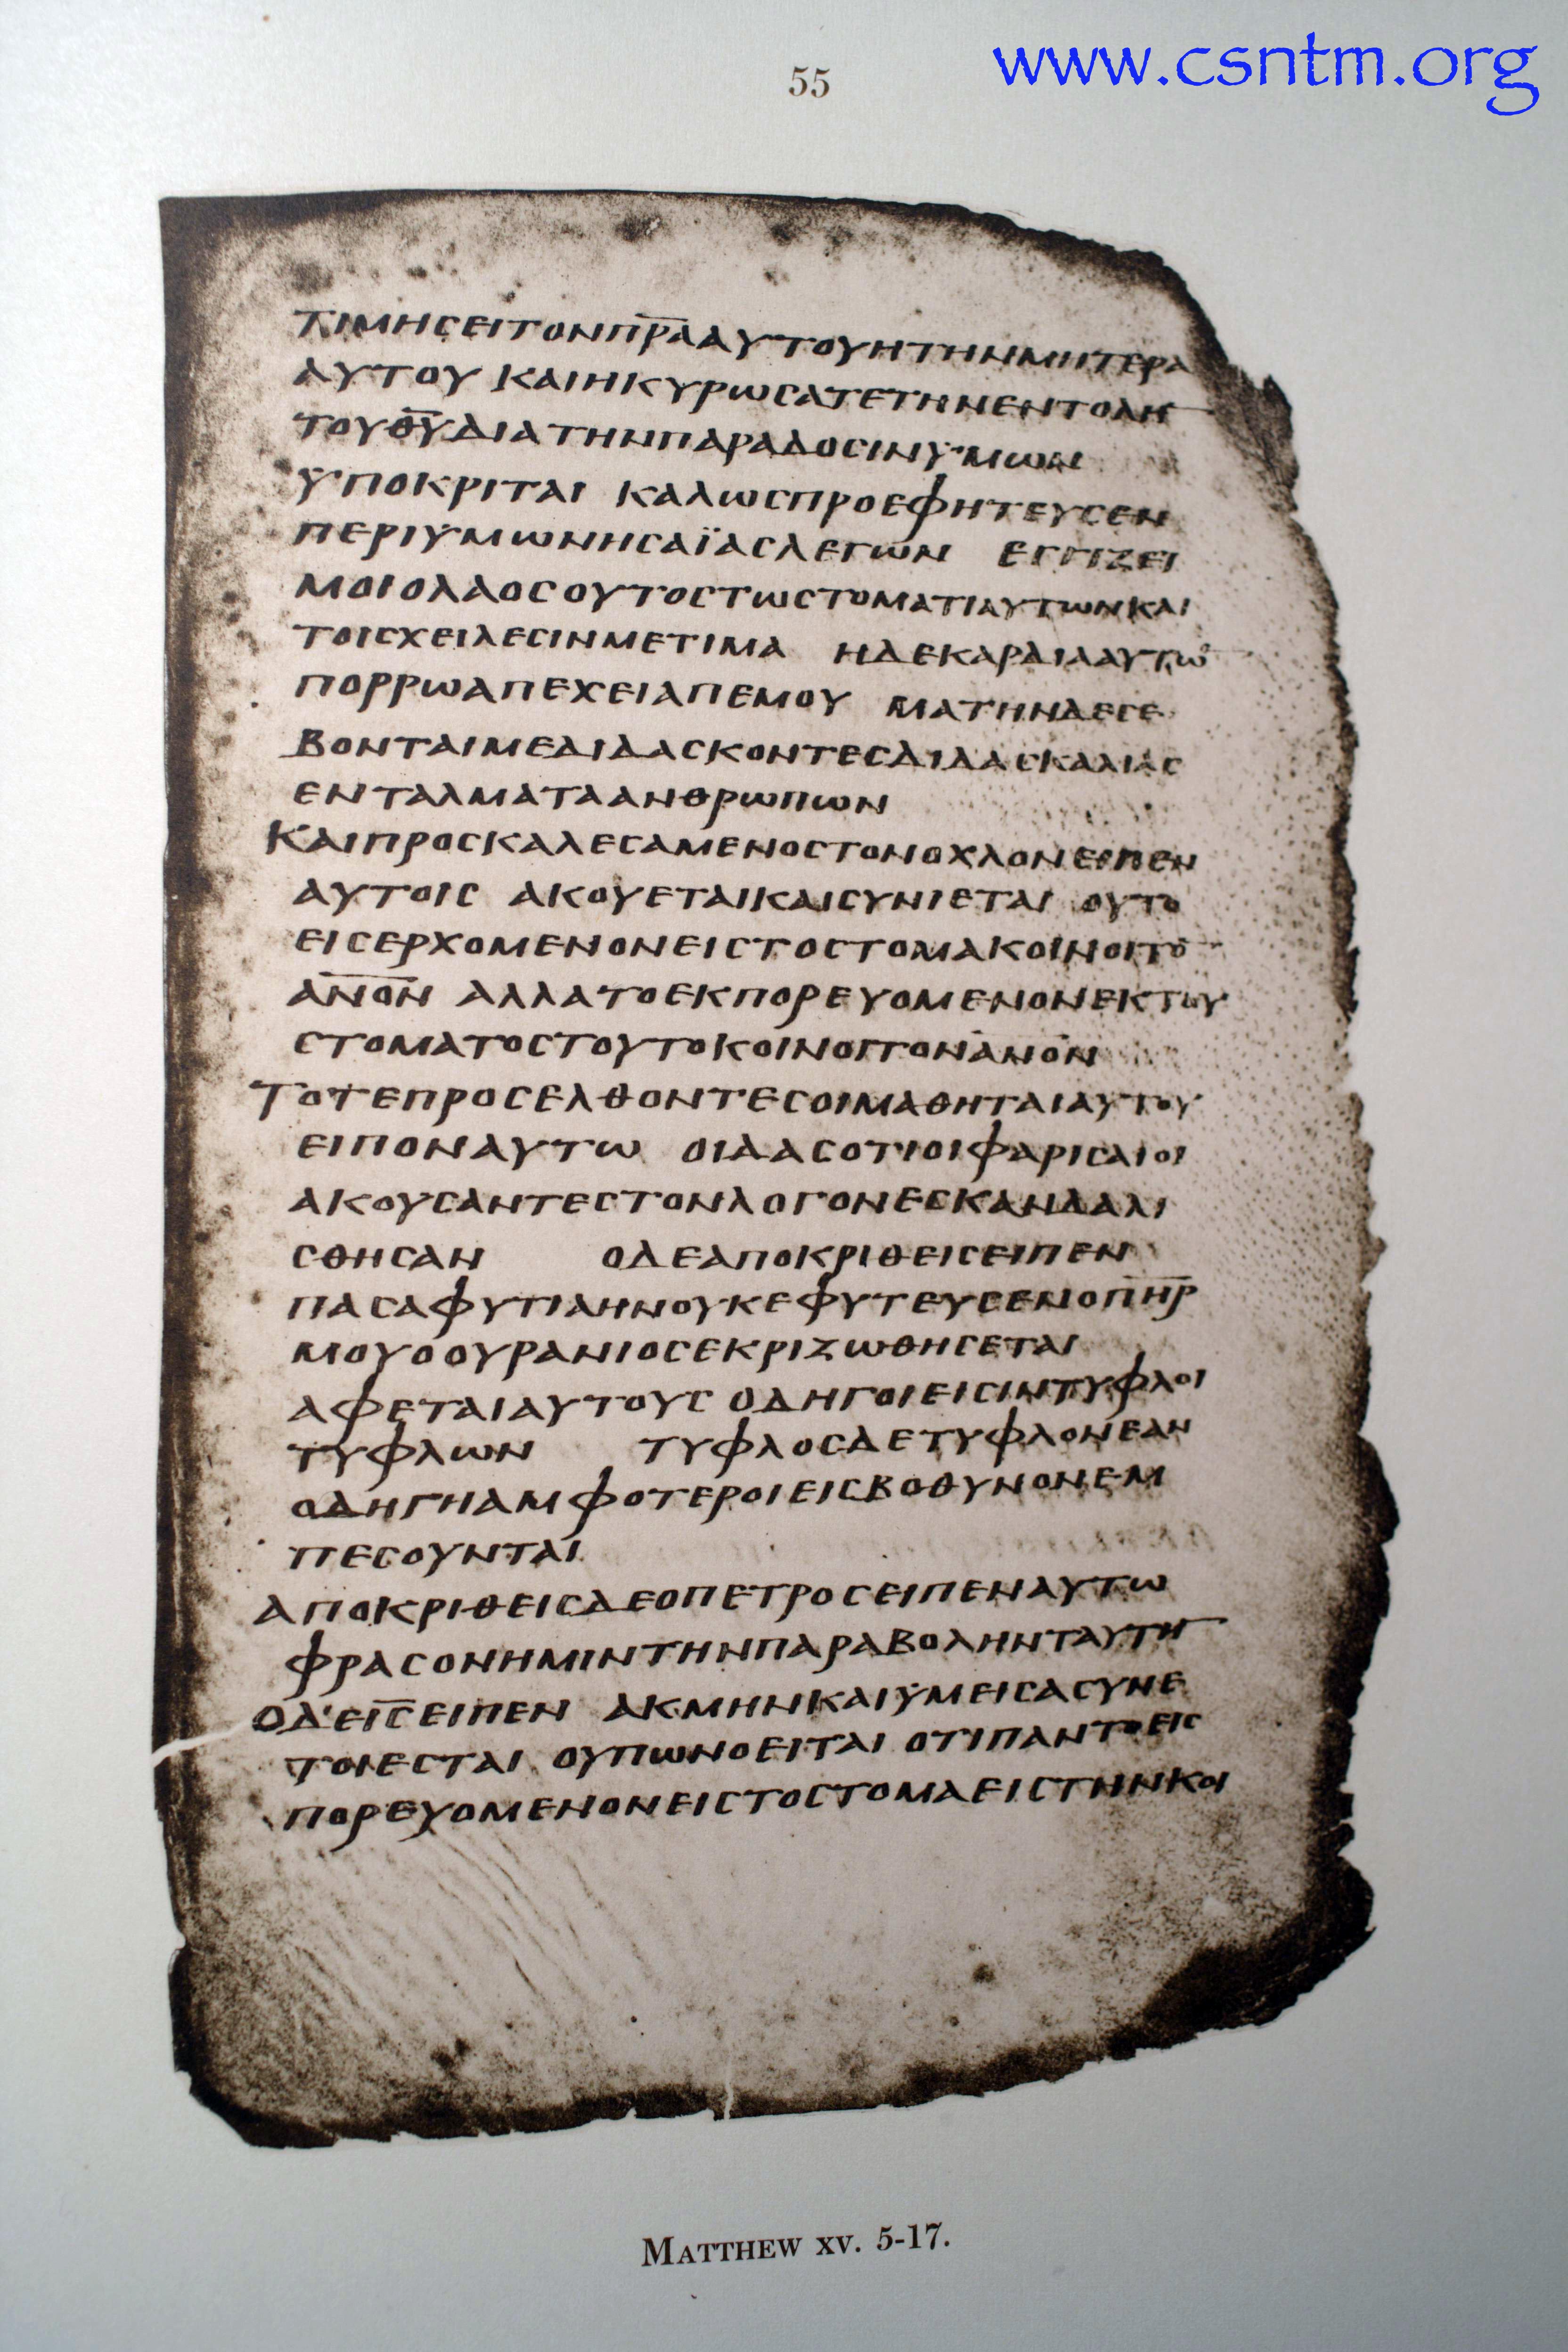 55
www.csntm.org
ΤΙΜΗСΕΙΤΟΝΠ̅Ρ̅Α̅ΑΥΤΟΥΗΤΗΝΜΗΤΕΡΑ
ΑΥΤΟΥ ΚΑΙΗΚΥΡωСΑΤΕΤΗΝΕΝΤΟΛΗ̅
ΤΟΥΘ̅Υ̅ΔΙΑΤΗΝΠΑΡΑΔΟСΙΝΥΜωΝ
ΥΠΟΚΡΙΤΑΙ ΚΑΛωСΠΡΟΕΦΗΤΕΥСΕΝ
ΠΕΡΙΥΜωΝΗСΑΪΑСΛΕΓωΝ ΕΓΓΙΖΕΙ
ΜΟΙΟΛΑΟСΟΥΤΟСΤωСΤΟΜΑΤΙΑΥΤωΝΚΑΙ
ΤΟΙСΧΕΙΛΕСΙΝΜΕΤΙΜΑ ΗΔΕΚΑΡΔΙΑΑΥΤω̅
ΠΟΡΡωΑΠΕΧΕΙΑΠΕΜΟΥ ΜΑΤΗΝΔΕСΕ
ΒΟΝΤΑΙΜΕΔΙΔΑСΚΟΝΤΕСΔΙΔΑСΚΑΛΙΑС
ΕΝΤΑΛΜΑΤΑΑΝΘΡωΠωΝ
ΚΑΙΠΡΟСΚΑΛΕСΑΜΕΝΟСΤΟΝΟΧΛΟΝΕΙΠΕΝ
ΑΥΤΟΙС ΑΚΟΥΕΤΑΙΚΑΙСΥΝΙΕΤΑΙ ΟΥΤΟ
ΕΙСΕΡΧΟΜΕΝΟΝΕΙСΤΟСΤΟΜΑΚΟΙΝΟΙΤΟ̅
Α̅Ν̅Ο̅Ν̅ ΑΛΛΑΤΟΕΚΠΟΡΕΥΟΜΕΝΟΝΕΚΤΟΥ
СΤΟΜΑΤΟСΤΟΥΤΟΚΟΙΝΟΙΤΟΝΑ̅Ν̅Ο̅Ν̅
ΤΟΤΕΠΡΟСΕΛΘΟΝΤΕСΟΙΜΑΘΗΤΑΙΑΥΤΟΥ
ΕΙΠΟΝΑΥΤω ΟΙΔΑСΟΤΙΟΙΦΑΡΙСΑΙΟΙ
ΑΚΟΥСΑΝΤΕСΤΟΝΛΟΓΟΝΕСΚΑΝΔΑΛΙ
СΘΗСΑΝ ΟΔΕΑΠΟΚΡΙΘΕΙСΕΙΠΕΝ
ΠΑСΑΦΥΤΙΑΗΝΟΥΚΕΦΥΤΕΥСΕΝΟΠ̅Η̅Ρ̅
ΜΟΥΟΟΥΡΑΝΙΟСΕΚΡΙΖωΘΗСΕΤΑΙ
ΑΦΕΤΑΙΑΥΤΟΥС ΟΔΗΓΟΙΕΙСΙΝΤΥΦΛΟΙ
ΤΥΦΛωΝ ΤΥΦΛΟСΔΕΤΥΦΛΟΝΕΑΝ
ΟΔΗΓΗΑΜΦΟΤΕΡΟΙΕΙСΒΟΘΥΝΟΝΕΜ
ΠΕСΟΥΝΤΑΙ
ΑΠΟΚΡΙΘΕΙСΔΕΟΠΕΤΡΟСΕΙΠΕΝΑΥΤω
ΦΡΑСΟΝΗΜΙΝΤΗΝΠΑΡΑΒΟΛΗΝΤΑΥΤΗ̅
ΟΔΕΙ̅С̅ΕΙΠΕΝ ΑΚΜΗΝΚΑΙΥΜΕΙСΑСΥΝΕ
ΤΟΙΕСΤΑΙ ΟΥΠωΝΟΕΙΤΑΙ ΟΤΙΠΑΝΤΟΕΙС
ΠΟΡΕΥΟΜΕΝΟΝΕΙСΤΟСΤΟΜΑΕΙСΤΗΝΚΟΙ
MATTHEW XV. 5-17.